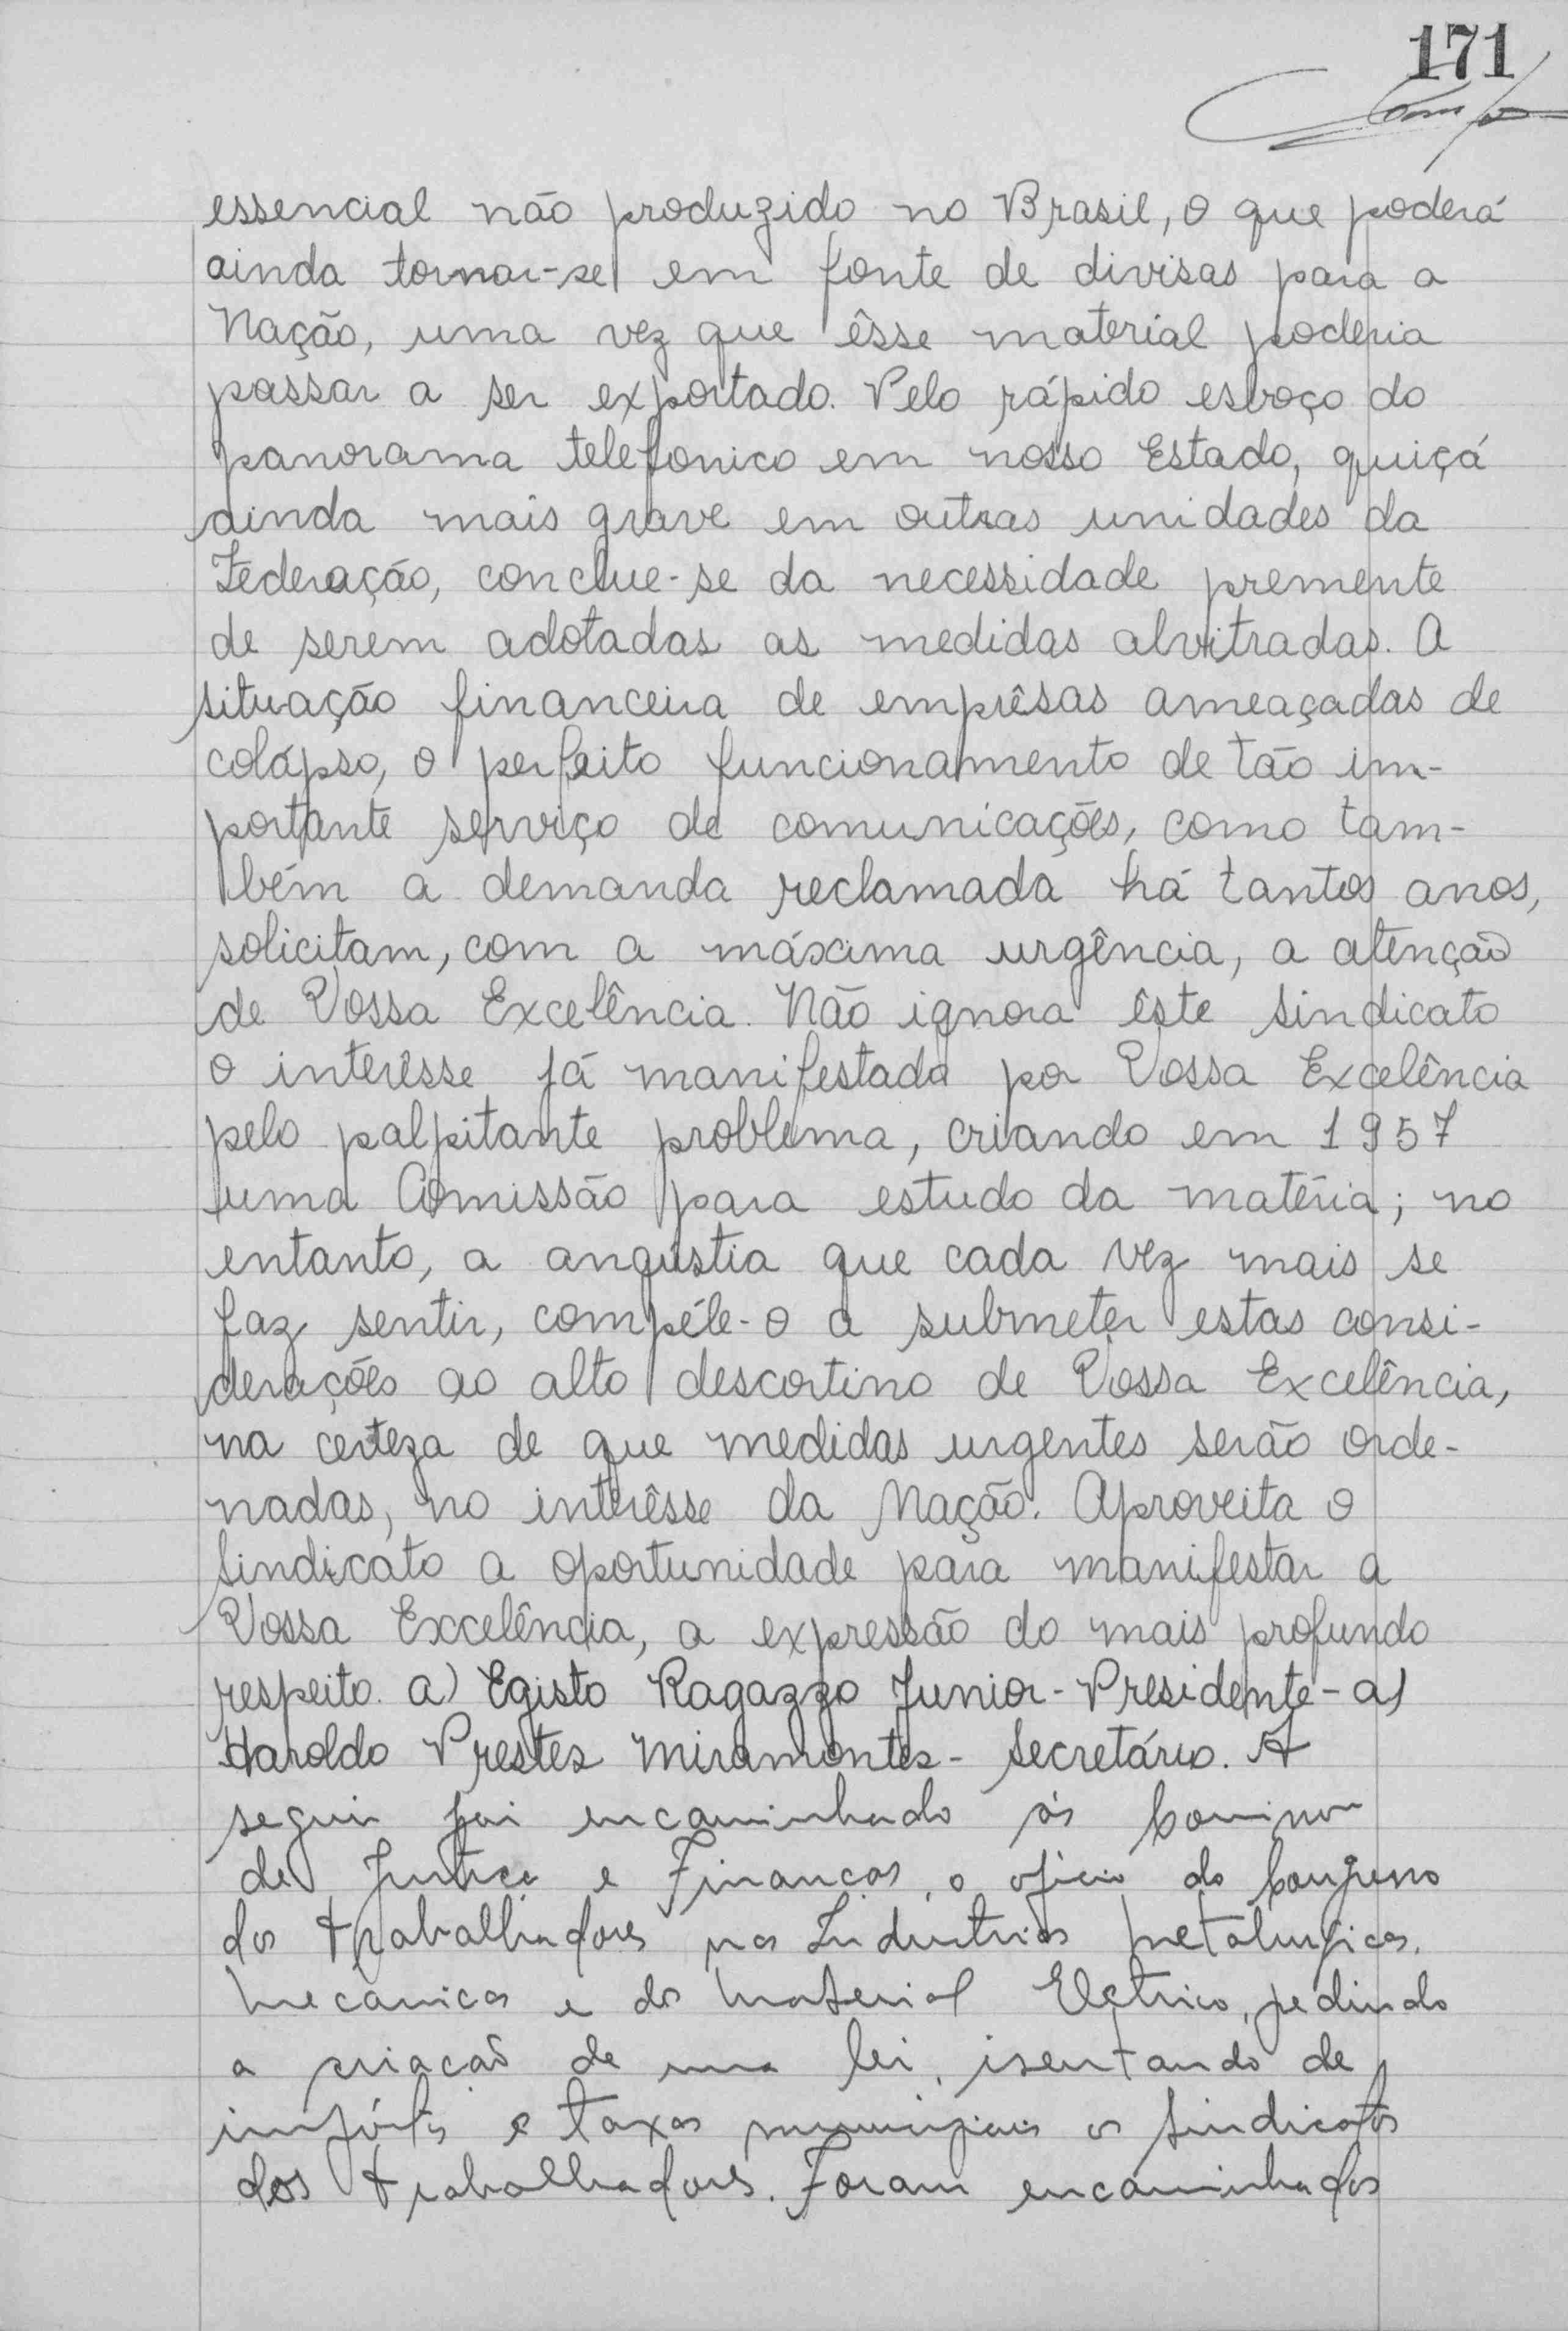 171
essencial não produzido no Brasil, o que poderá
ainda tornar-se em fonte de divisas para a
Nação, uma vez que êsse material poderia
passar a ser exportado. Pelo rápido esboço do
panorama telefonico em nosso Estado, quiçá
ainda mais grave em outras unidades da
Federação, conclue-se da necessidade premente
de serem adotadas as medidas alvitradas. A
situação financeira de emprêsas ameaçadas de
colápso, o perfeito funcionamento de tão im-
portante serviço de comunicações, como tam-
bém a demanda reclamada há tantos anos,
solicitam, com a máxima urgência, a atenção
de Vossa Excelência. Não ignora êste sindicato
o interêsse já manifestado por Vossa Excelência
pelo palpitante problema, criando em 1957
uma Comissão para estudo da matéria; no
entanto, a angústia que cada vez mais se
faz sentir, compéle-o a submeter estas consi-
derações ao alto descortino de Vossa Excelência,
na certeza de que medidas urgentes serão orde-
nadas, no interêsse da Nação. Aproveita o
Sindicato a oportunidade para manifestar a
Vossa Excelência, a expressão do mais profundo
respeito. a) Egisto Ragazzo Junior - Presidente - a)
Haroldo Prestes Miramontes - Secretário. A
seguir foi encaminhado ás
de Justiça e Finanças, o oficio do Congresso
dos trabalhadores nas Industrias Metalurgicas,
Mecanicas e do Material Eletrico, pedindo
a criacaõ de uma lei, isentando de
impóstos e taxas municipais os Sindicatos
dos trabalhadores. Foram encaminhados